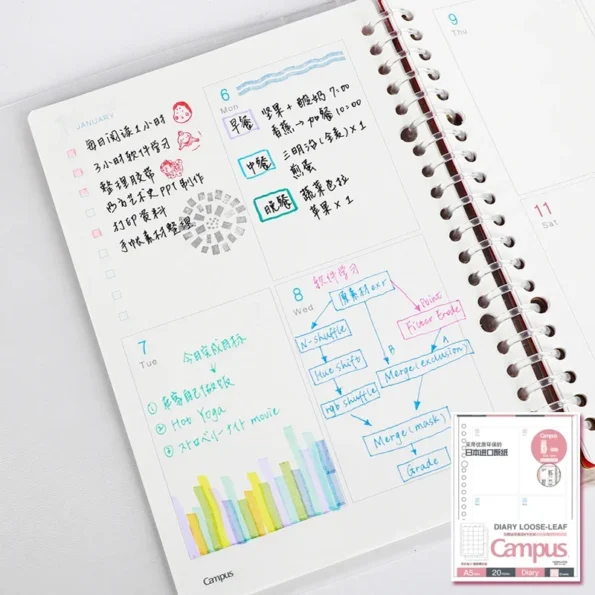 JANUARY
每日阅读1小时
3小时软件学习
整理胶带
西方艺术史PPT制作
打印资料
手帐素材整理
6
Mon
早餐
坚果+酸奶 7:00
香蕉→加餐 10:00
中餐
三明治(全麦)×1
煎蛋
晚餐
蔬菜色拉
苹果×1
7
Tue
今日完成目标
① 来客自己做饭
② Hot Yoga
③ ストロベリーナイト movie
8
Wed
软件学习
原素材exr
Point
N-shuffle
Hue shift
rgb shuffle
B
A
Merge(exclusion)
Merge(mask)
Grade
9
Thu
11
Sat
Campus
采用优质环保的
日本进口原纸
Campus
DIARY LOOSE-LEAF
Campus
A5
20
Diary